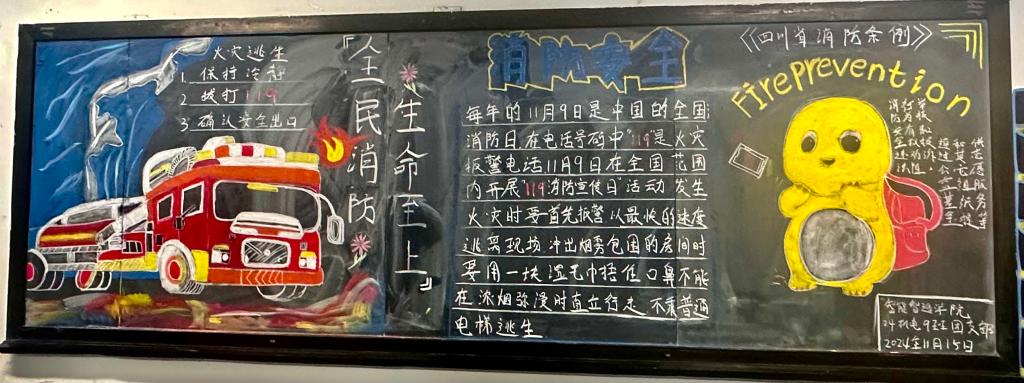 火灾逃生
1. 保持冷却
2 拨打119
3 确认安全出口
『全民消防
生命至上』
消防安全
每年的11月9日是中国的全国
消防日,在电话号码中"119"是火灾
报警电话11月9日在全国范围
内开展"119消防宣传日"活动 发生
火灾时要首先报警以最快的速度
逃离现场 冲出烟雾包围的房间时
要用一块湿毛巾捂住口鼻不能
在浓烟弥漫时直立行走 不乘普通
电梯逃生
《四川省消防条例》
FirePrevention
智能制造学院
团支部
2024年11月15日